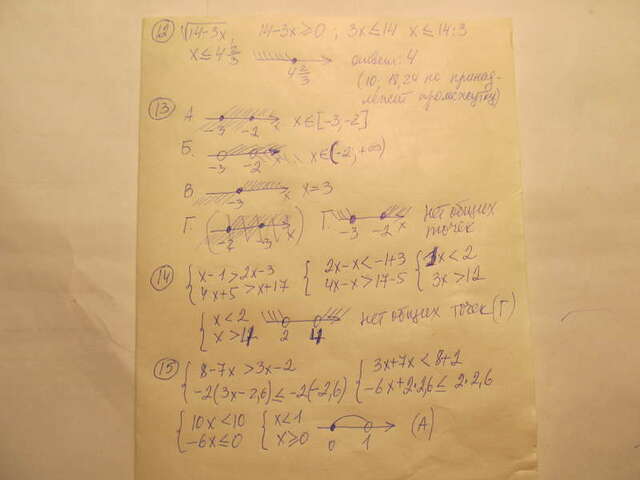 12 √14-3x; 14-3x≥0; 3x≤14 x≤14:3
x≤4 2/3 4 2/3 ответ: 4
(10, 18, 24 не принад-
лежат промежутку)
13 А -3 -2 x x∈[-3,-2]
Б. -3 -2 x∈(-2; +∞)
В -3 x=3
Г. ( -2 -3 x ) Г. -3 -2 x нет общих
точек
14 { x-1>2x-3 { 2x-x<-1+3 { 1x<2
4x+5>x+17 4x-x>17-5 3x>12
{ x<2 2 4 нет общих точек (Г)
x>4
15 { 8-7x>3x-2 { 3x+7x<8+2
-2(3x-2,6)≤-2(-2,6) -6x+2·2,6≤2·2,6
{ 10x<10 { x<1 0 1 (А)
-6x≤0 x≥0